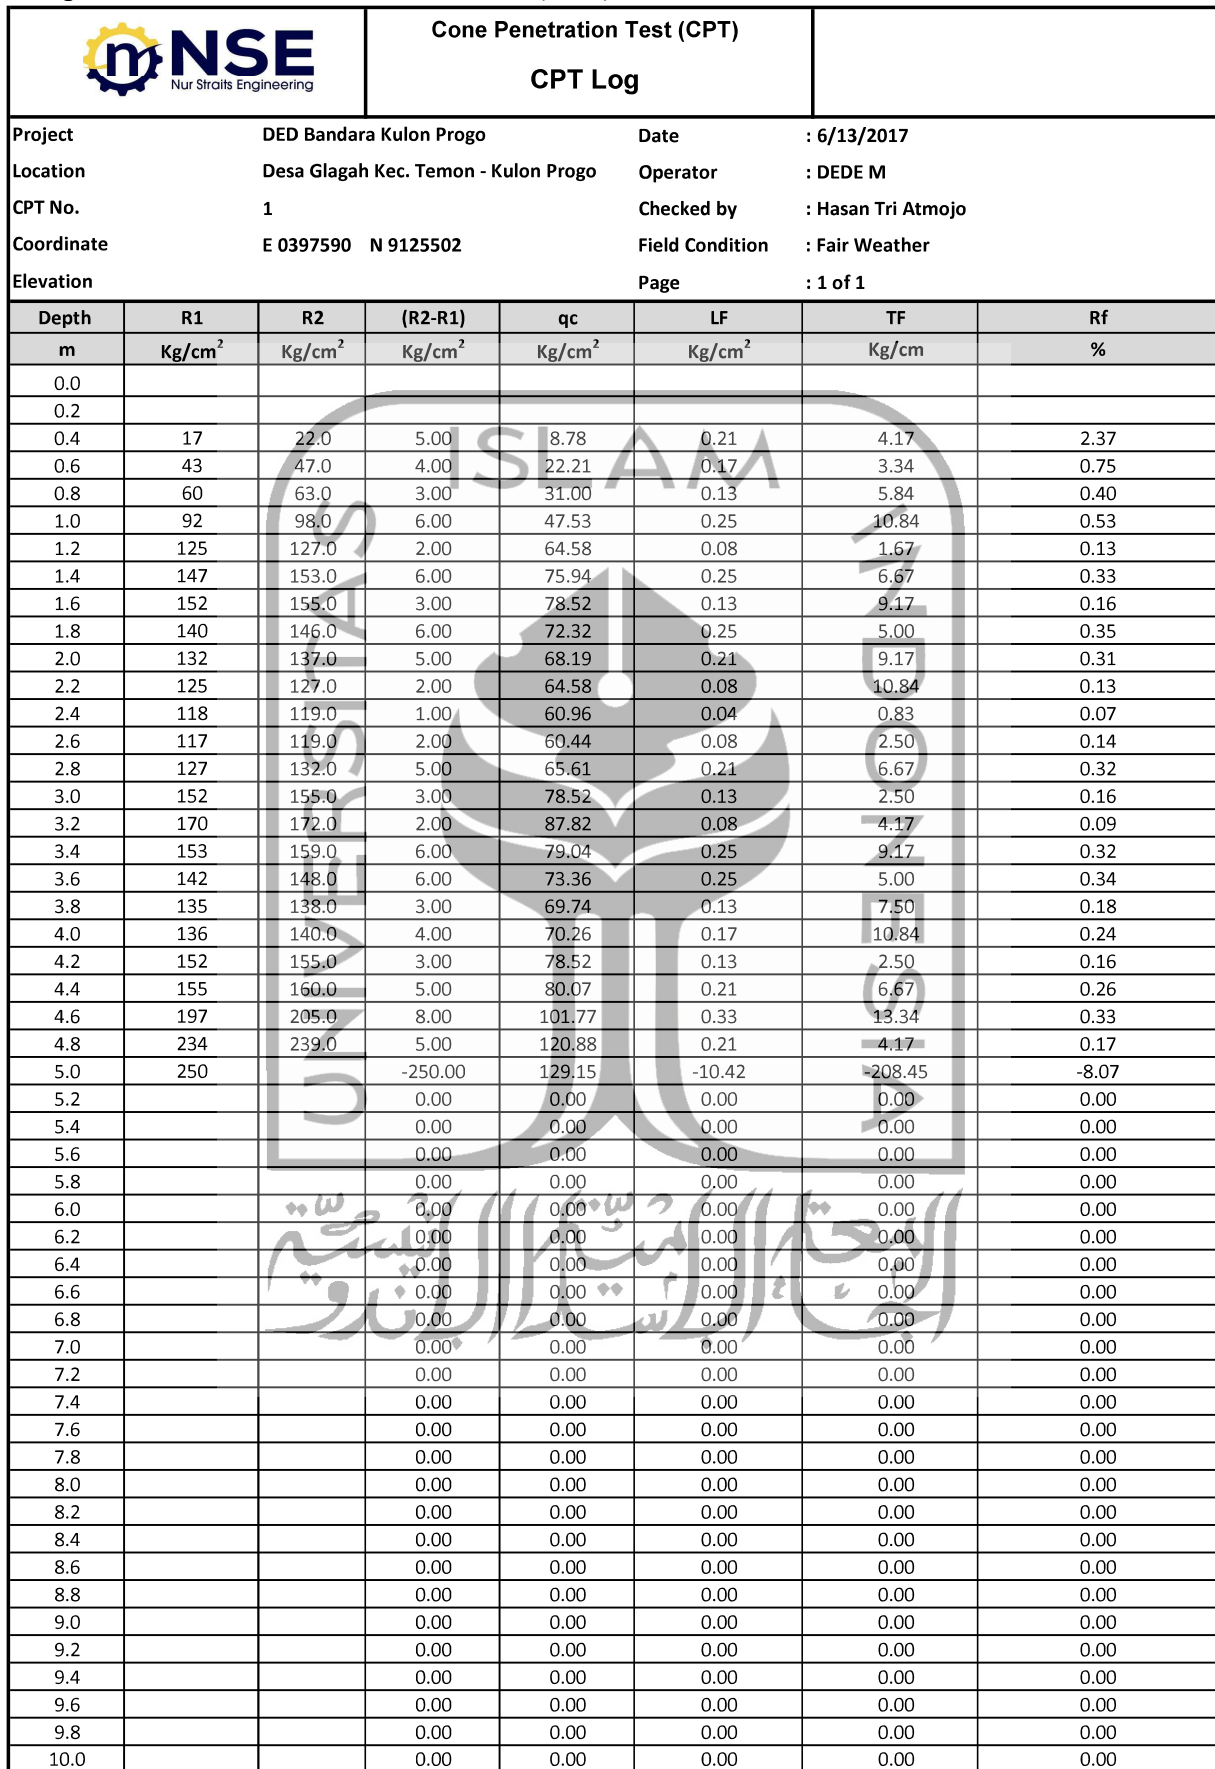 NSE
Nur Straits Engineering
Cone Penetration Test (CPT)
CPT Log
Project DED Bandara Kulon Progo Date : 6/13/2017
Location Desa Glagah Kec. Temon - Kulon Progo Operator : DEDE M
CPT No. 1 Checked by : Hasan Tri Atmojo
Coordinate E 0397590 N 9125502 Field Condition : Fair Weather
Elevation Page : 1 of 1
Depth R1 R2 (R2-R1) qc LF TF Rf
m Kg/cm² Kg/cm² Kg/cm² Kg/cm² Kg/cm² Kg/cm %
0.0
0.2
0.4 17 22.0 5.00 8.78 0.21 4.17 2.37
0.6 43 47.0 4.00 22.21 0.17 3.34 0.75
0.8 60 63.0 3.00 31.00 0.13 5.84 0.40
1.0 92 98.0 6.00 47.53 0.25 10.84 0.53
1.2 125 127.0 2.00 64.58 0.08 1.67 0.13
1.4 147 153.0 6.00 75.94 0.25 6.67 0.33
1.6 152 155.0 3.00 78.52 0.13 9.17 0.16
1.8 140 146.0 6.00 72.32 0.25 5.00 0.35
2.0 132 137.0 5.00 68.19 0.21 9.17 0.31
2.2 125 127.0 2.00 64.58 0.08 10.84 0.13
2.4 118 119.0 1.00 60.96 0.04 0.83 0.07
2.6 117 119.0 2.00 60.44 0.08 2.50 0.14
2.8 127 132.0 5.00 65.61 0.21 6.67 0.32
3.0 152 155.0 3.00 78.52 0.13 2.50 0.16
3.2 170 172.0 2.00 87.82 0.08 4.17 0.09
3.4 153 159.0 6.00 79.04 0.25 9.17 0.32
3.6 142 148.0 6.00 73.36 0.25 5.00 0.34
3.8 135 138.0 3.00 69.74 0.13 7.50 0.18
4.0 136 140.0 4.00 70.26 0.17 10.84 0.24
4.2 152 155.0 3.00 78.52 0.13 2.50 0.16
4.4 155 160.0 5.00 80.07 0.21 6.67 0.26
4.6 197 205.0 8.00 101.77 0.33 13.34 0.33
4.8 234 239.0 5.00 120.88 0.21 4.17 0.17
5.0 250 -250.00 129.15 -10.42 -208.45 -8.07
5.2 0.00 0.00 0.00 0.00 0.00
5.4 0.00 0.00 0.00 0.00 0.00
5.6 0.00 0.00 0.00 0.00 0.00
5.8 0.00 0.00 0.00 0.00 0.00
6.0 0.00 0.00 0.00 0.00 0.00
6.2 0.00 0.00 0.00 0.00 0.00
6.4 0.00 0.00 0.00 0.00 0.00
6.6 0.00 0.00 0.00 0.00 0.00
6.8 0.00 0.00 0.00 0.00 0.00
7.0 0.00 0.00 0.00 0.00 0.00
7.2 0.00 0.00 0.00 0.00 0.00
7.4 0.00 0.00 0.00 0.00 0.00
7.6 0.00 0.00 0.00 0.00 0.00
7.8 0.00 0.00 0.00 0.00 0.00
8.0 0.00 0.00 0.00 0.00 0.00
8.2 0.00 0.00 0.00 0.00 0.00
8.4 0.00 0.00 0.00 0.00 0.00
8.6 0.00 0.00 0.00 0.00 0.00
8.8 0.00 0.00 0.00 0.00 0.00
9.0 0.00 0.00 0.00 0.00 0.00
9.2 0.00 0.00 0.00 0.00 0.00
9.4 0.00 0.00 0.00 0.00 0.00
9.6 0.00 0.00 0.00 0.00 0.00
9.8 0.00 0.00 0.00 0.00 0.00
10.0 0.00 0.00 0.00 0.00 0.00
UNIVERSITAS
ISLAM
INDONESIA